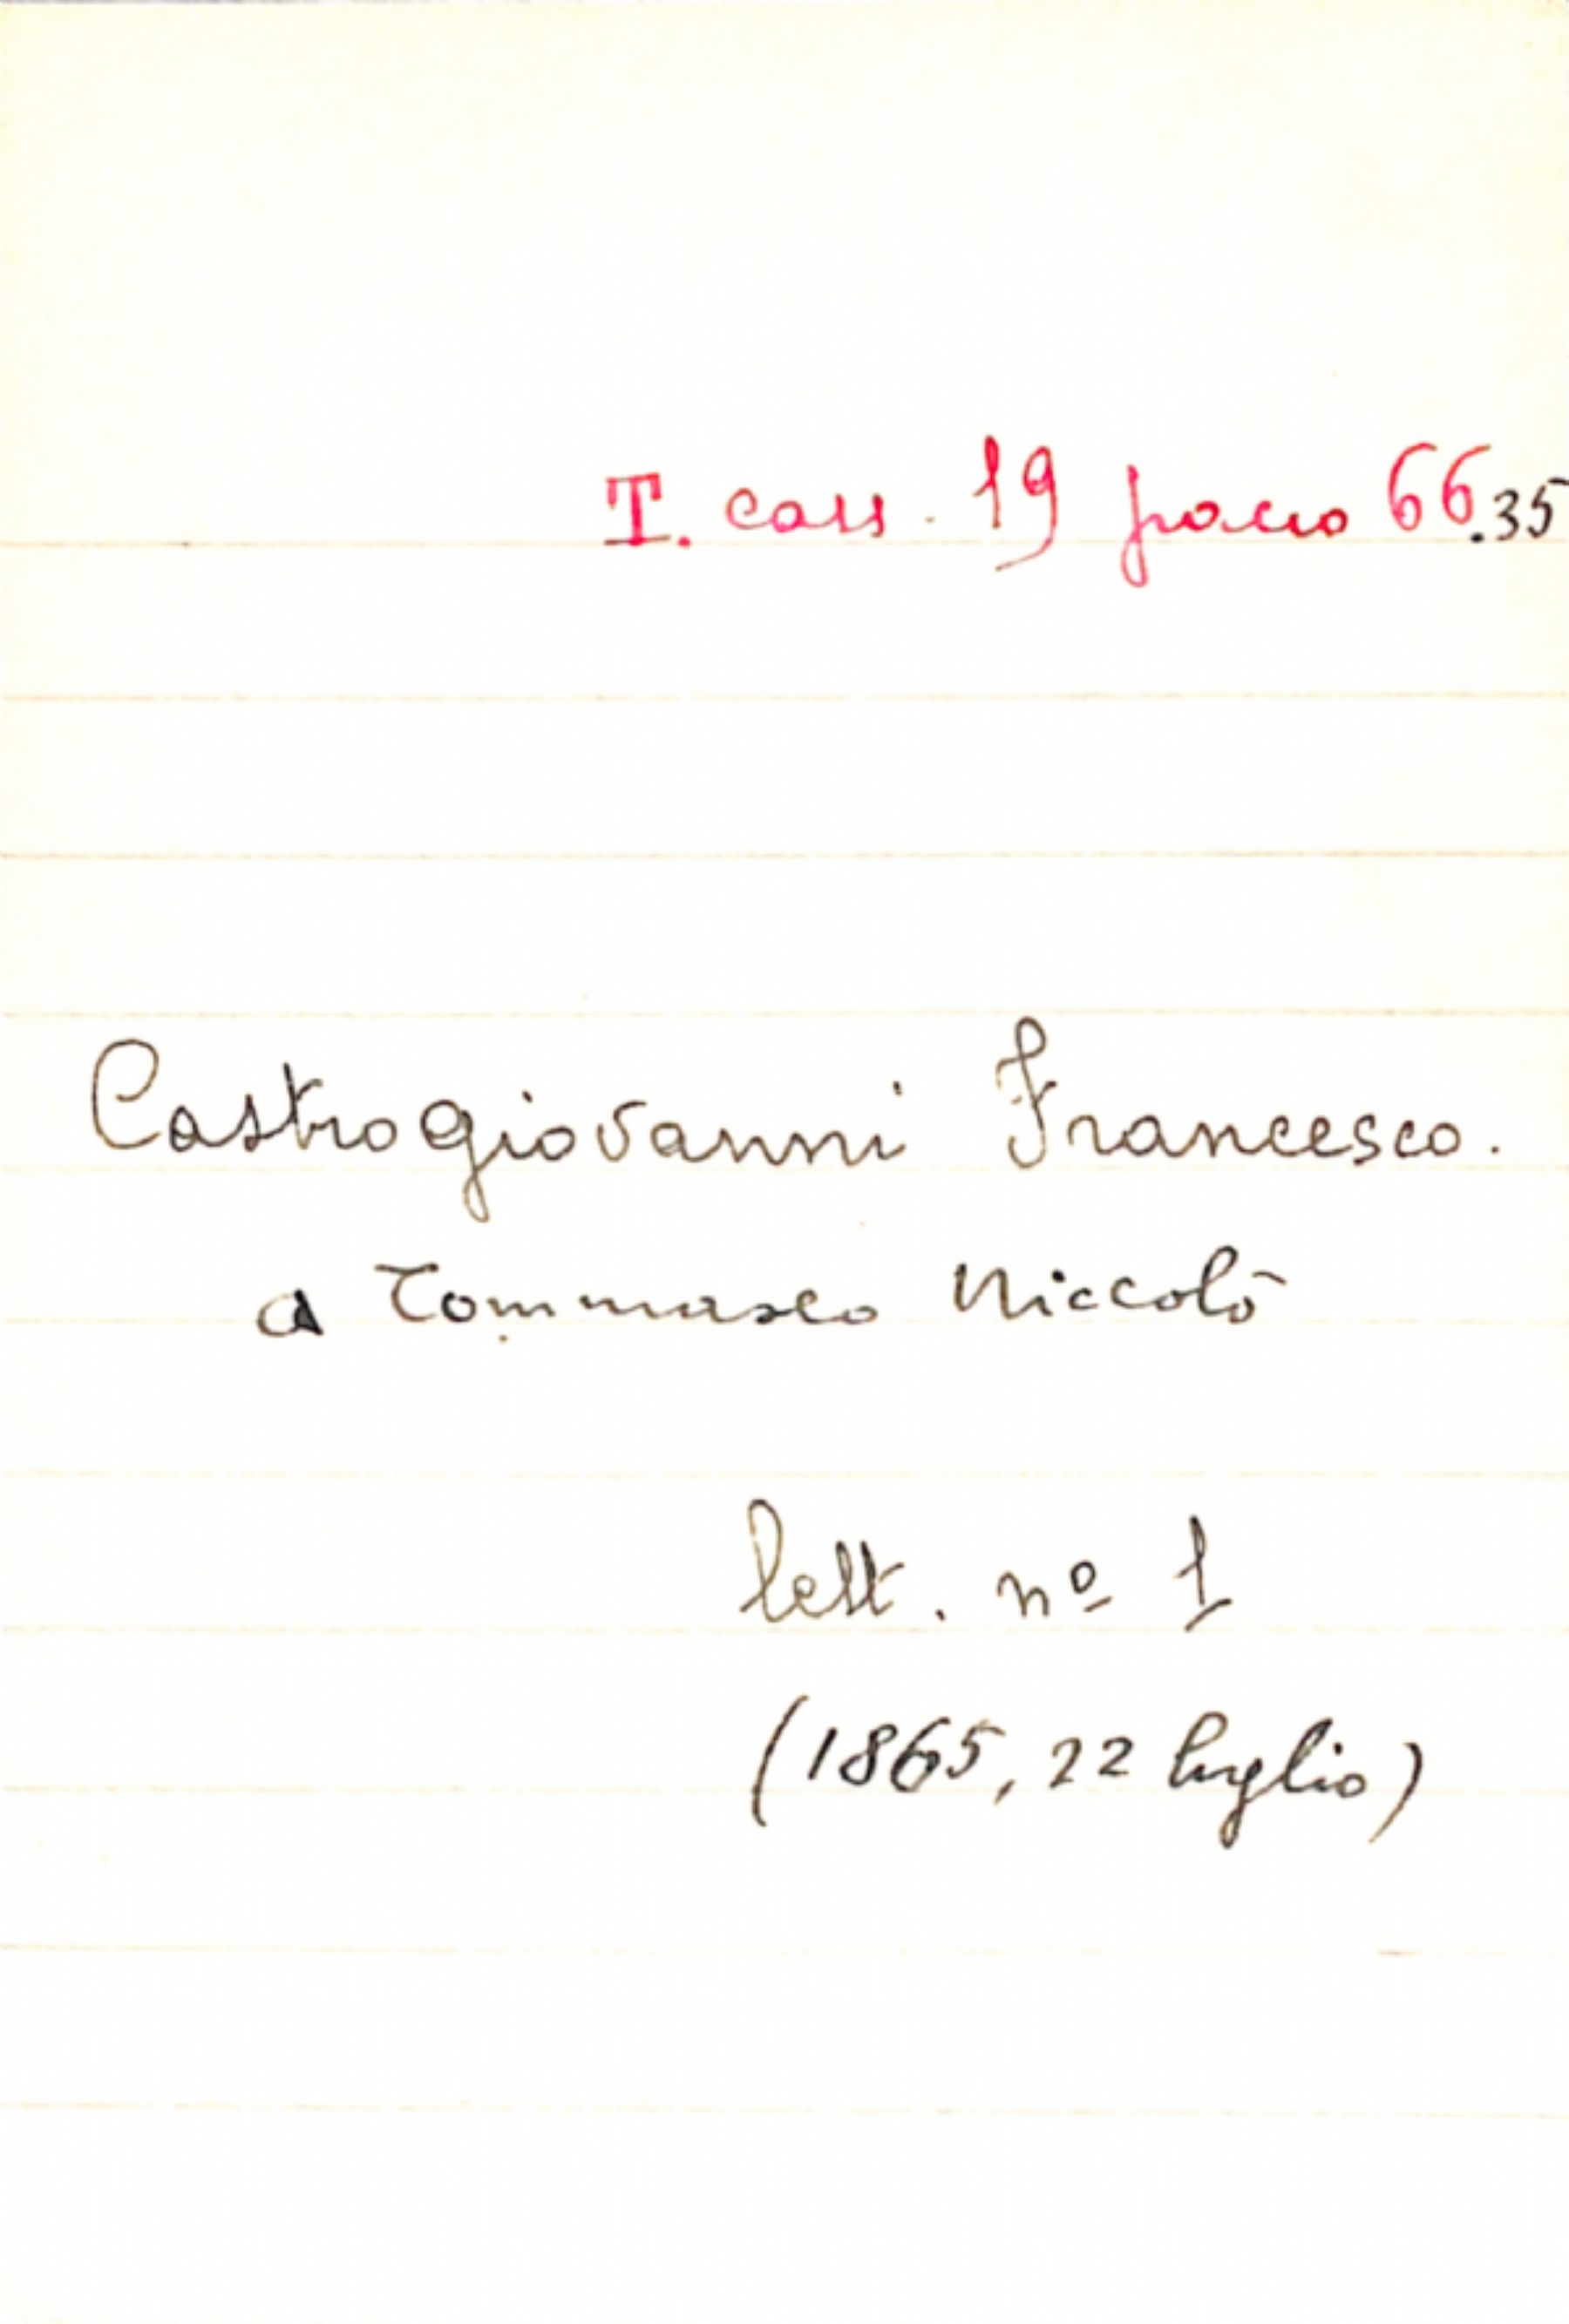 T. cass. 19 pacco 66.35
Castrogiovanni Francesco.
a Tommaseo Niccolò
lett. nº 1
(1865, 22 luglio)